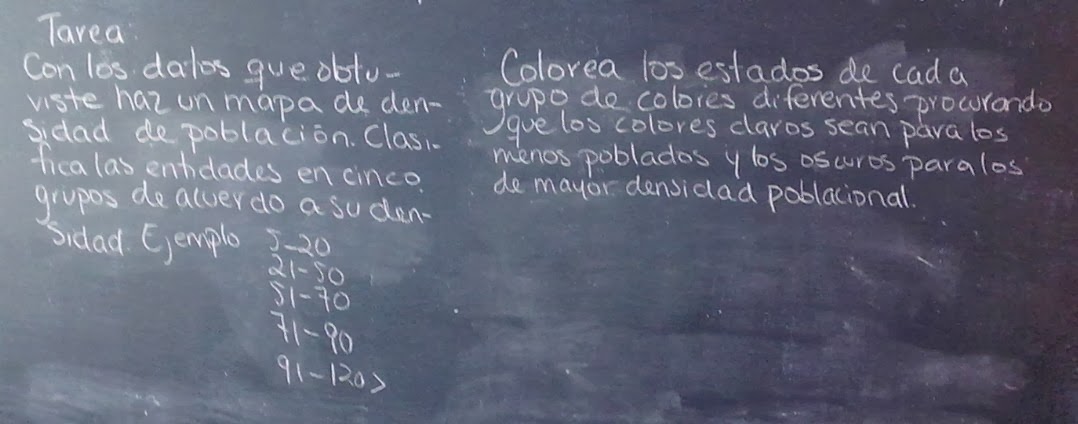 Tarea:
Con los datos que obtu-
viste haz un mapa de den-
sidad de población. Clasi-
fica las entidades en cinco
grupos de acuerdo a su den-
sidad. Ejemplo 5-20
21-50
51-70
71-90
91-120>
Colorea los estados de cada
grupo de colores diferentes procurando
que los colores claros sean para los
menos poblados y los oscuros para los
de mayor densidad poblacional.